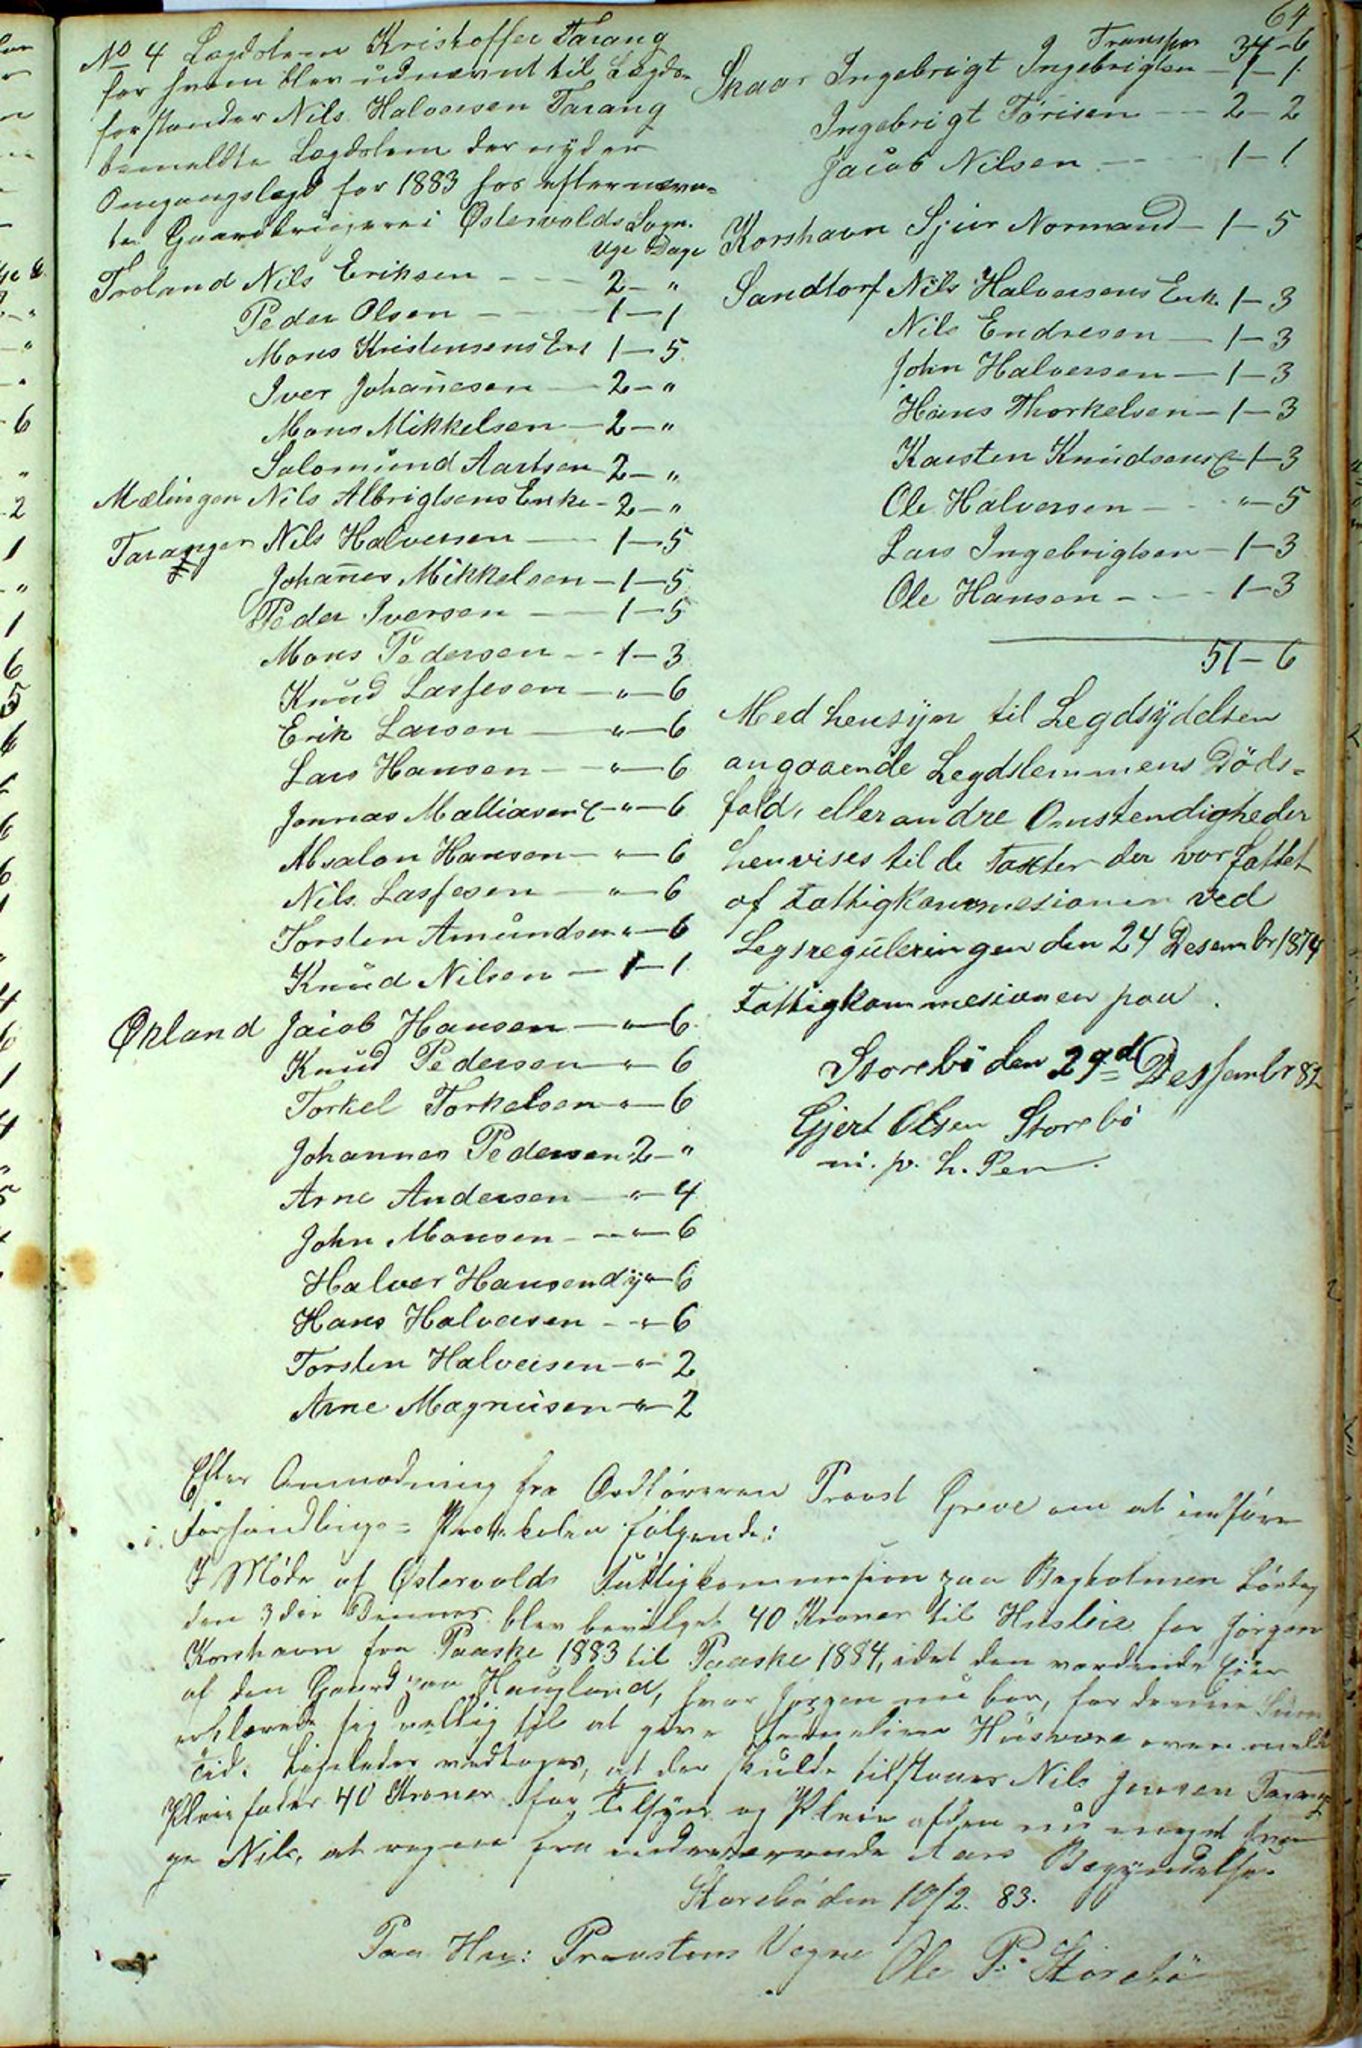 64
No 4 Legdslem Kristoffer Tarang
for hvem blev udnævnt til Legds-
forstander Nils Halvorsen Tarang
bemeldte Legdslem der nyder
Omgangslegd for 1883 hos efternævn-
te Gaardbrugere i Østervolds Sogn.
Uge Dage
Troland Nils Eriksen — 2 - "
Peder Olsen — 1 - 1
Mons Kristensens Enk 1 - 5
Iver Johanesen — 2 - "
Mons Mikkelsen — 2 - "
Salomund Aartsen — 2 - "
Mælingen Nils Albrigtsens Enke - 2 - "
Taranger Nils Halversen — 1 - 5
Johanes Mikkelsen — 1 - 5
Peder Iversen — 1 - 5
Mons Pedersen — 1 - 3
Knud Lassesen — " - 6
Erik Larsen — " - 6
Lars Hansen — " - 6
Jonnas Matiasen — " - 6
Absalon Hansen — " - 6
Nils Lassesen — " - 6
Torsten Amundsen " - 6
Knud Nilsen — 1 - 1
Økland Jacob Hansen — " - 6
Knud Pedersen " - 6
Torkel Torkelsen " - 6
Johannes Pedersen 2 - "
Arne Andersen — " - 4
John Monsen — " - 6
Halver Hansen dÿ " - 6
Hans Halversen — " - 6
Torsten Halversen — " - 2
Arne Magnusen " - 2
Transpor 34 - 6
Skaar Ingebrigt Ingebrigtsen — 1 - 1
Ingebrigt Torisen — 2 - 2
Jacob Nilsen — 1 - 1
Korshavn Sjur Normand — 1 - 5
Sandtorf Nils Halversens Enk 1 - 3
Nils Endresen — 1 - 3
John Halversen — 1 - 3
Hans Thorkelsen — 1 - 3
Karsten Knudsens E - 1 - 3
Ole Halversen — " - 5
Lars Ingebrigtsen — 1 - 3
Ole Hansen — 1 - 3
51 - 6
Med hensijn til Legdsÿdelsen
angaaende Legdslemmens Döds-
fald, eller andre Omstendigheder
henvises til de Takster der var fattet
af Fattigkommesionen ved
Legsreguleringen den 24 Desembr 1874
Fattigkommesionen paa
Storebö den 29d Dessembr 82
Gjert Olsen Storebö
m. p. h. Pen
Efter Anmodning fra Ordföreren Provst Greve om at indföre
i Forhandlings-Protokolen fölgende:
I Möde af Østervolds Fattigkommission paa Bagholmen Lördag
den 3die Dennes blev bevilget 40 Kroner til Husleie for Jörgen
Korshavn fra Paaske 1883 til Paaske 1884, idet den vordende Eier
af den Gaard paa Haugland, hvor Jörgen nu bor, for denne Sum
erklærede sig villig til at give Familien Husvære oven meldte
Tid. Ligeledes vedtoges, at der skulde tilstaaes Nils Jensen Tarang
Pleiefader 40 Kroner for Tilsyn og Pleie af den nu meget
Nils, at regne fra indeværende Aars Begyndelse.
Storebö den 10/2. 83.
Paa Hr: Provstens Vegne Ole P. Storebö